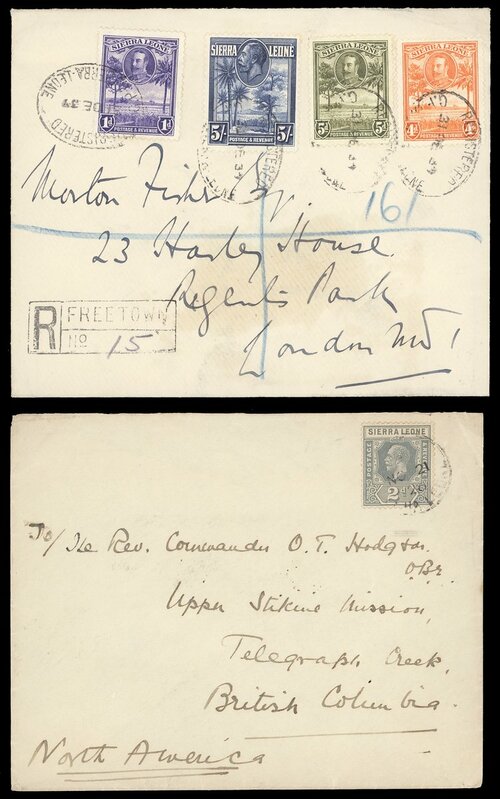 SIERRA LEONE
POSTAGE & REVENUE
1d 1d
SIERRA LEONE
5/- 5/-
POSTAGE & REVENUE
SIERRA LEONE
POSTAGE & REVENUE
5d 5d
SIERRA LEONE
POSTAGE & REVENUE
4d 4d
REGISTERED
SIERRA-LEONE
DE 34
REGISTERED
31
REGISTERED
Morton Fisher
161
23 Harley House.
Regents Park
London NW1
R FREETOWN
No 15
SIERRA LEONE
POSTAGE REVENUE
2d
21
To/ The Rev. Commander O. T. Hodgson.
OBE.
Upper Stikine Mission,
Telegraph Creek,
British Columbia.
North America